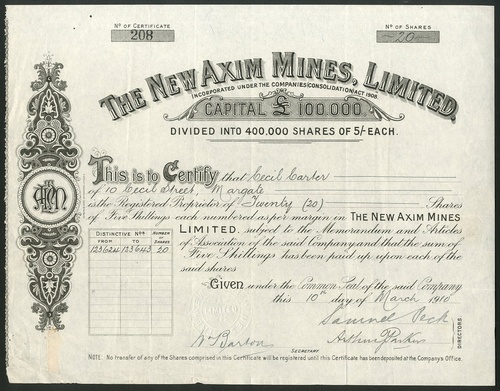 Nº OF CERTIFICATE
208
Nº OF SHARES
-20-
THE NEW AXIM MINES, LIMITED,
INCORPORATED UNDER THE COMPANIES (CONSOLIDATION) ACT 1908
CAPITAL £100,000.
DIVIDED INTO 400,000 SHARES OF 5/- EACH.
This is to Certify that Cecil Carter
of 10 Cecil Street, Margate
is the Registered Proprietor of Twenty (20) Shares
of Five Shillings each numbered as per margin in THE NEW AXIM MINES
LIMITED. subject to the Memorandum and Articles
of Association of the said Company and that the sum of
Five Shillings has been paid up upon each of the
said shares
DISTINCTIVE NºS
FROM TO
NUMBER OF SHARES
123624 123643 20
Given under the Common Seal of the said Company
this 10th day of March 1910
Samuel Peck
Arthur Parkes
DIRECTORS
W. Barton
SECRETARY
NOTE: No transfer of any of the Shares comprised in this Certificate will be registered until this Certificate has been deposited at the Company's Office.